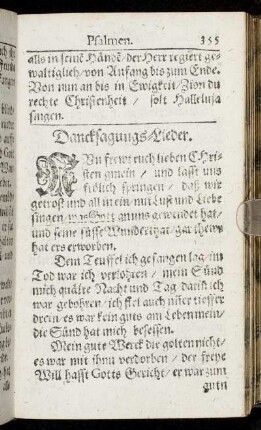 Psalmen. 355
alls in seinē Händē / der Herr regiert ge-
waltiglich / von Anfang bis zum Ende.
Von nun an bis in Ewigkeit / Zion du
rechte Christenheit / solt Halleluja
singen.
Dancksagungs-Lieder.
NUn frewt euch lieben Chri-
sten gmein / und lasst uns
frölich springen / daß wir
getrost und all in ein / mit Lust und Liebe
singen / was Gott an uns gewendet hat /
und seine süsse Wunderthat / gar thewr
hat ers erworben.
Dem Teuffel ich gefangen lag / im
Tod war ich verlohren / mein Sünd
mich quälte Nacht und Tag darin ich
war gebohren / ich fiel auch imer tieffer
drein / es war kein guts am Leben mein /
die Sünd hat mich besessen.
Mein gute Werck die golten nicht /
es war mit ihnn verdorben / der freye
Will hasst Gotts Gericht / er war zum
gutn